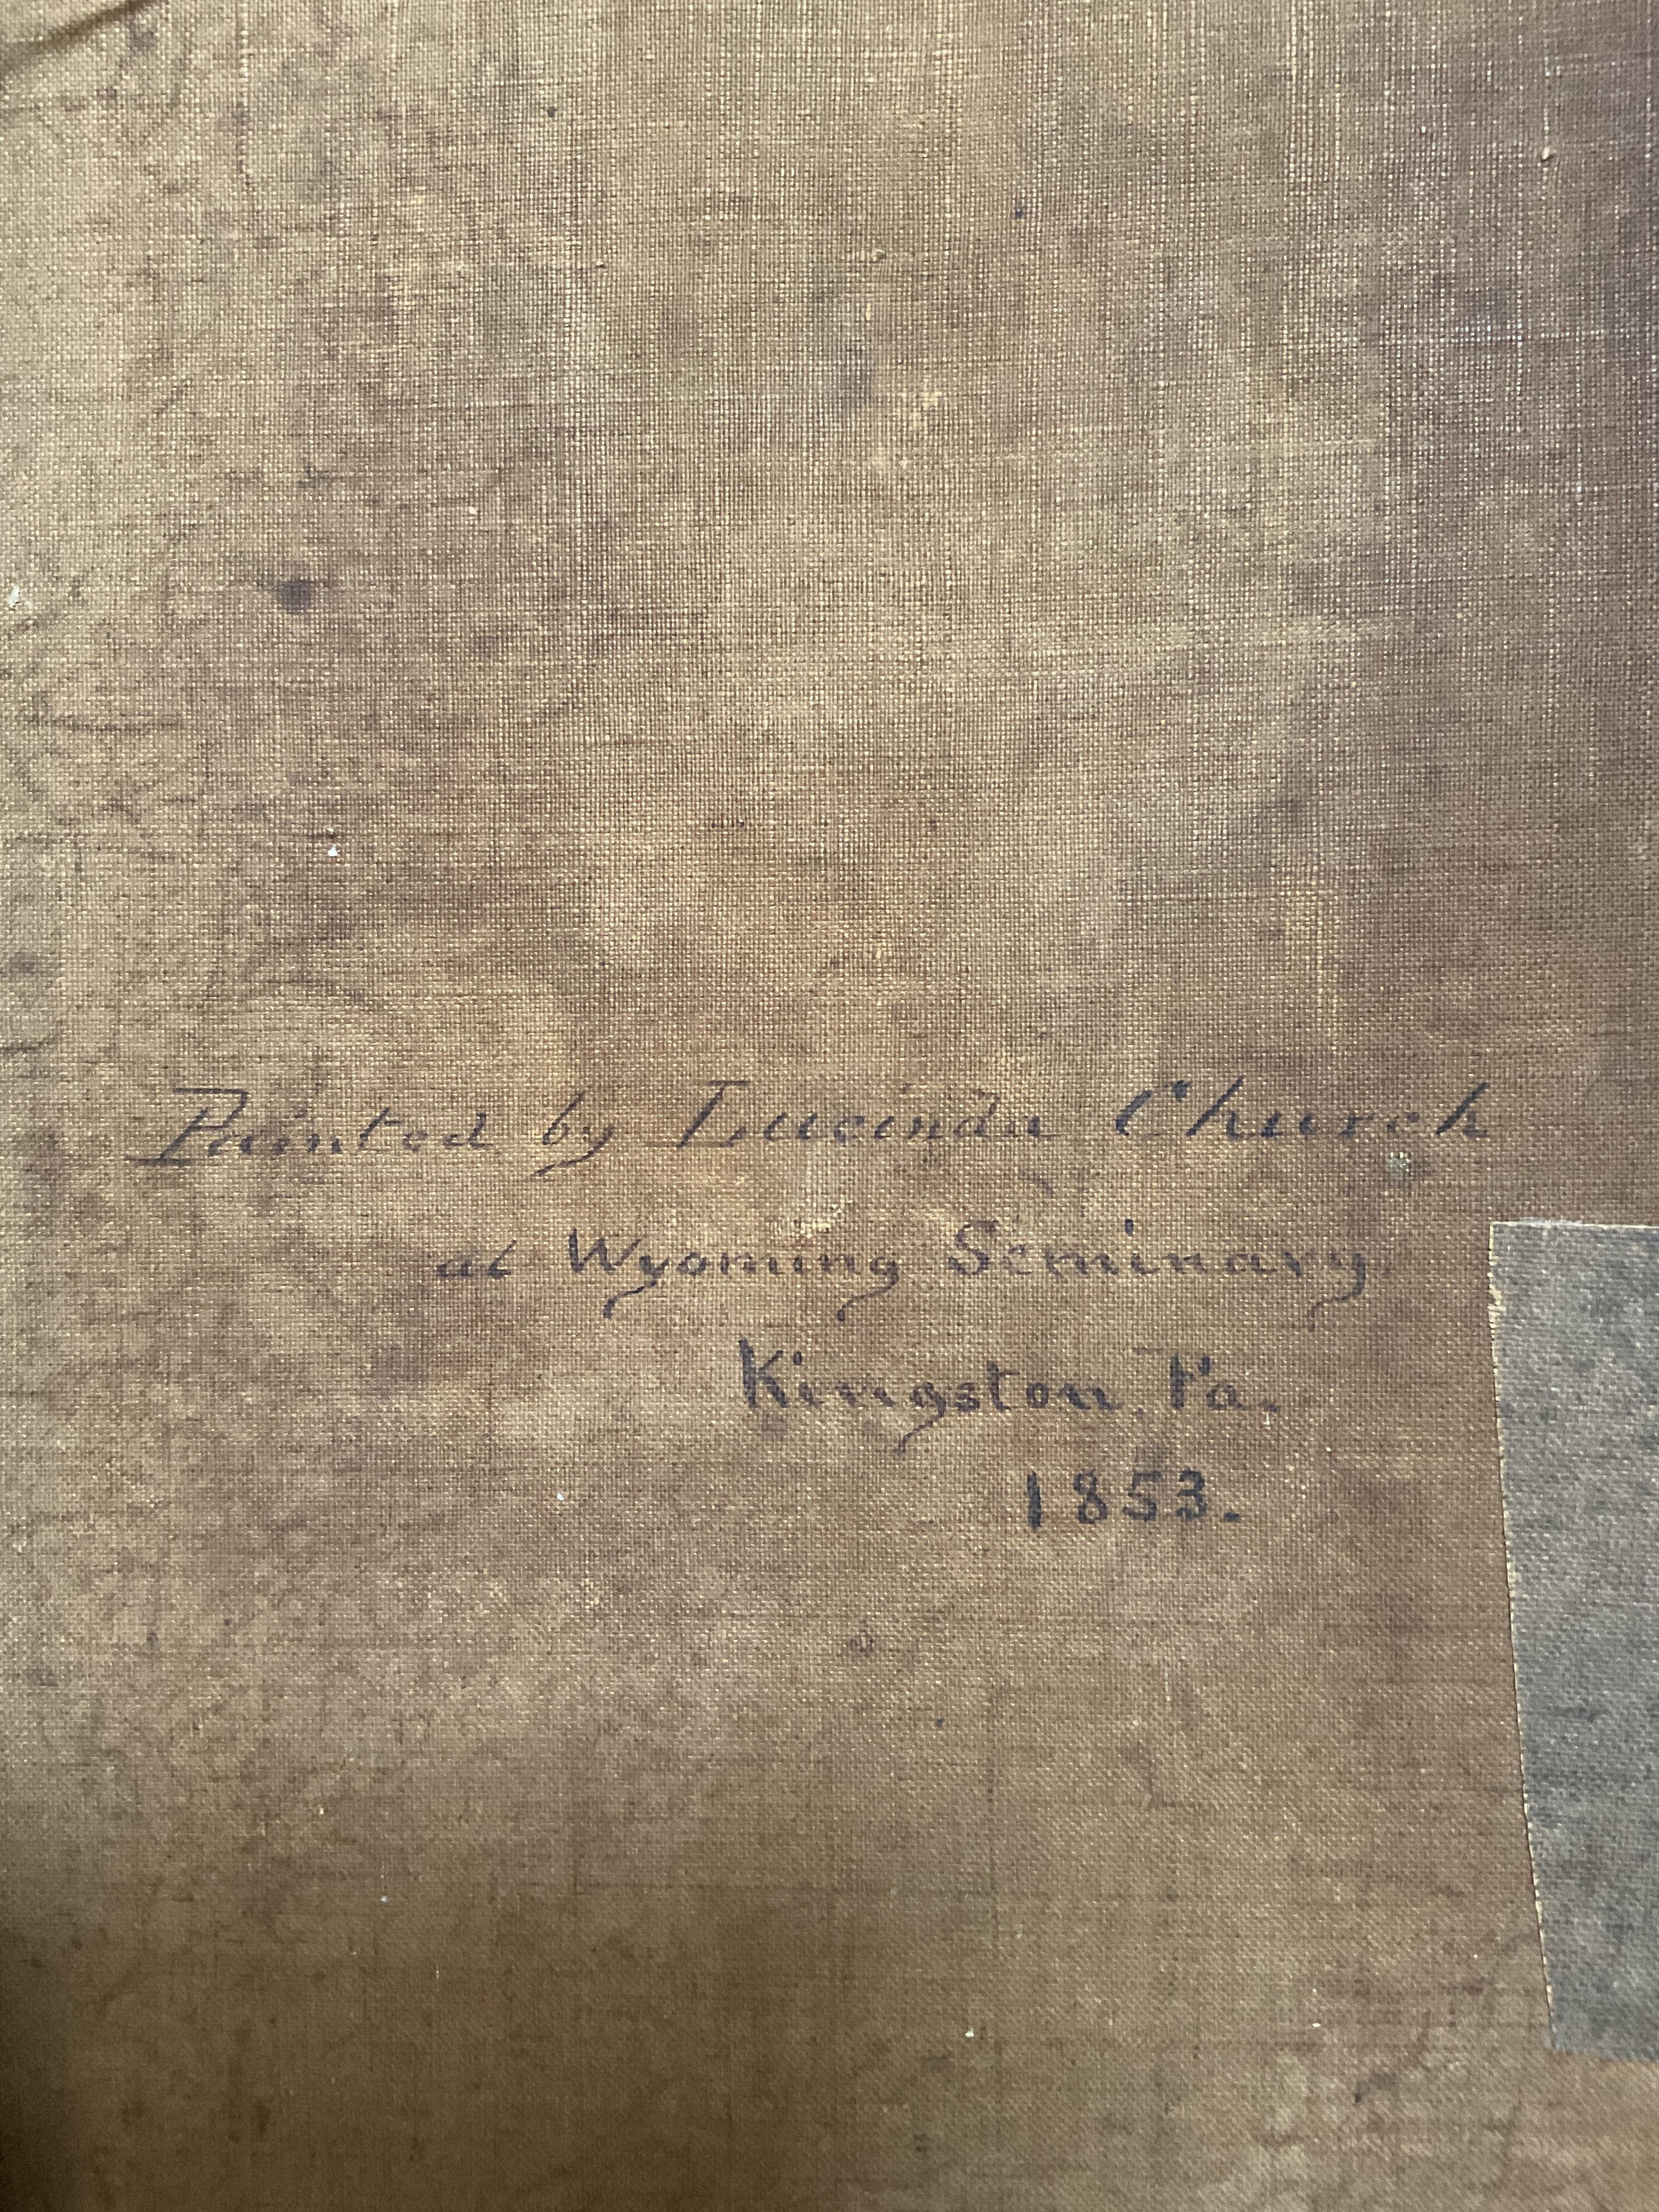 Painted by Lucinda Church
at Wyoming Seminary.
Kingston, Pa.
1853.